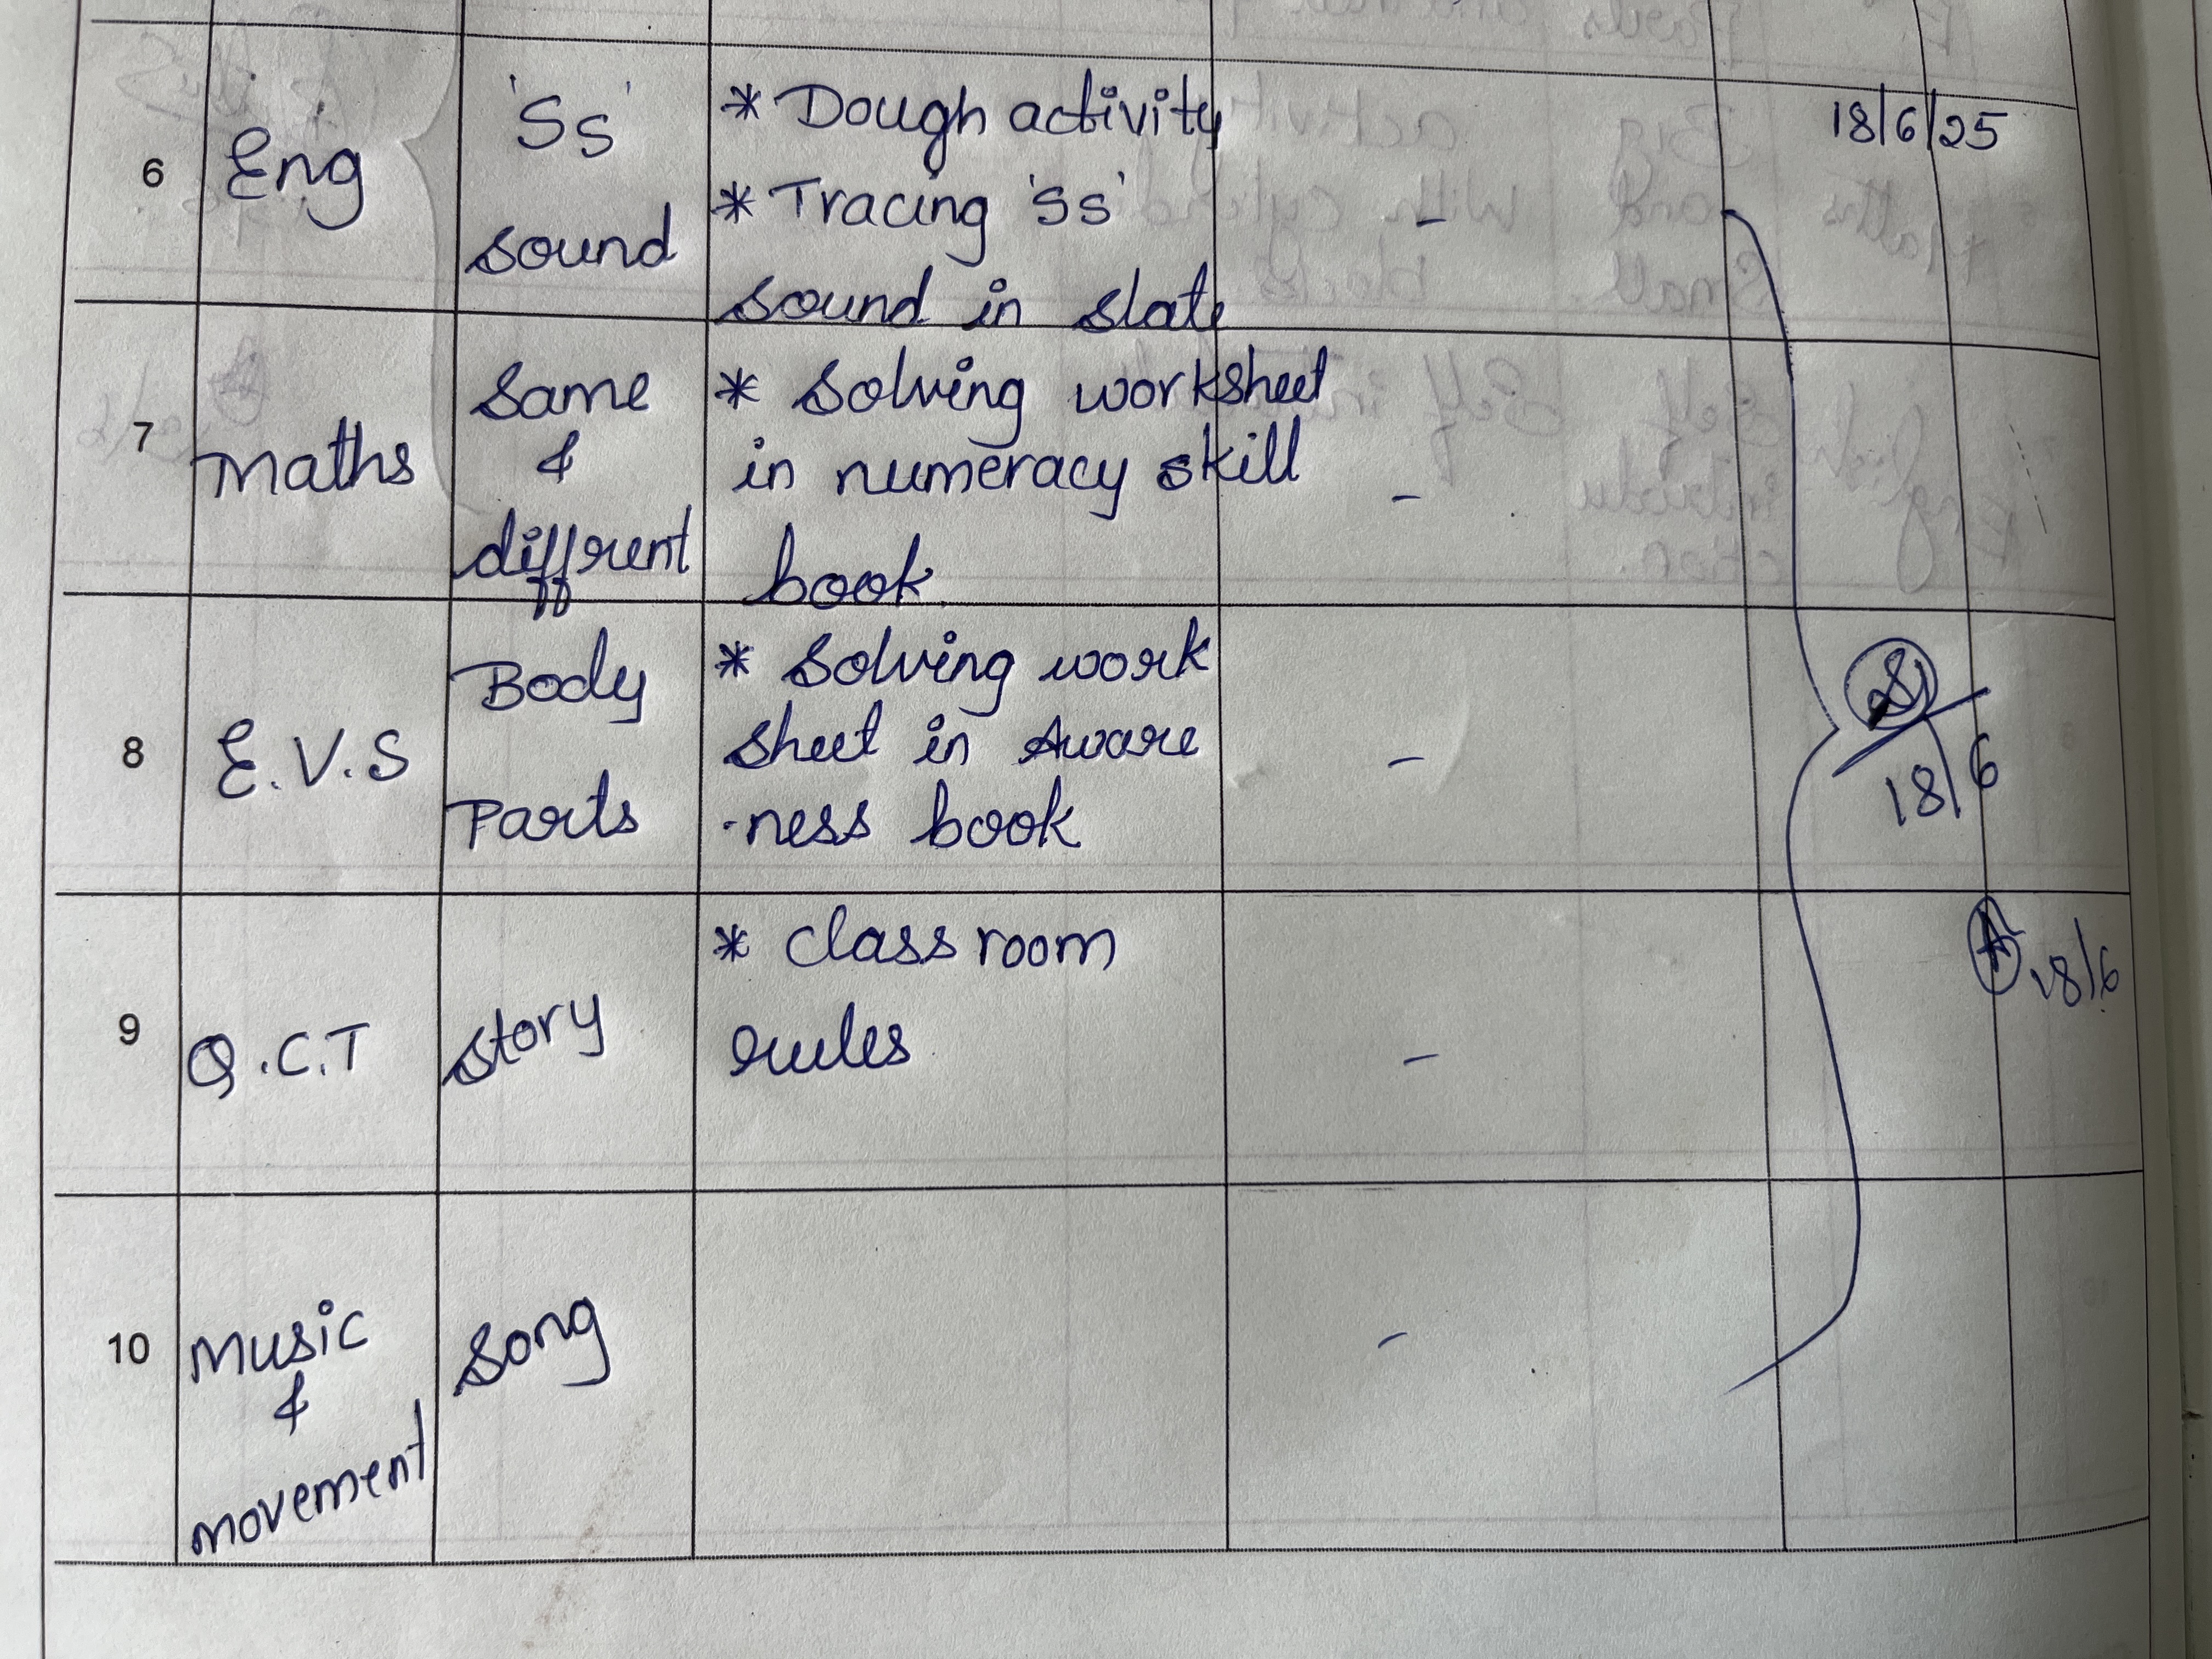 6 Eng 'Ss' sound * Dough activity
* Tracing 'Ss'
sound in slate
- 18/6/25
7 Maths Same & diffrent * Solving worksheet
in numeracy skill
book
-
8 E.V.S Body Parts * Solving work
sheet in Aware
-ness book
- 18/6
9 Q.C.T Story * Class room
rules
- 18/6
10 Music & movement Song -